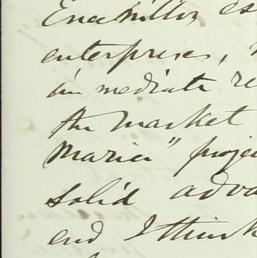 es
enterprises,
immediate re
the market
Maria" projec
solid adva
and I think